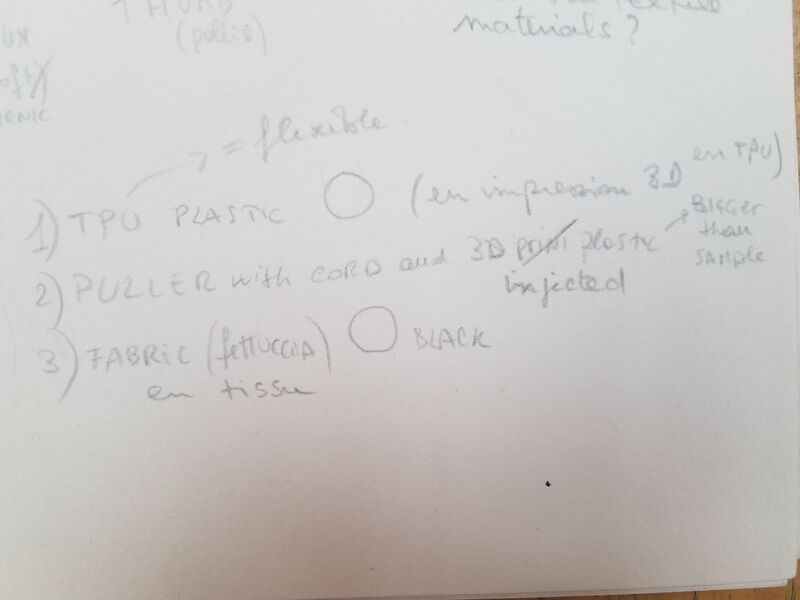 THUMB
(pollic)
textile
materials?
= flexible
1) TPU PLASTIC (en impression 3D en TPU)
2) PULLER with CORD and 3D print plastic
injected
BIGGER
than
SAMPLE
3) FABRIC (fettuccia) BLACK
en tissu